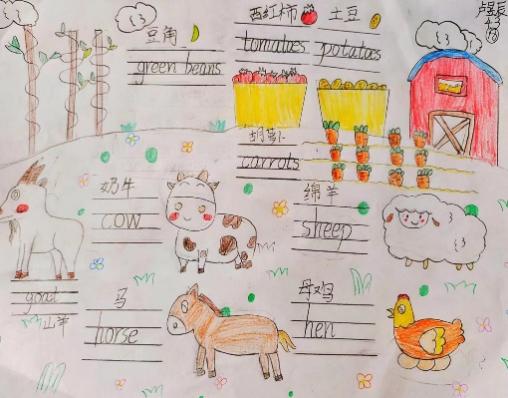 豆角
green beans
西红柿 土豆
tomatoes potatoes
胡萝卜
carrots
奶牛
cow
绵羊
sheep
goat
山羊
马
horse
母鸡
hen